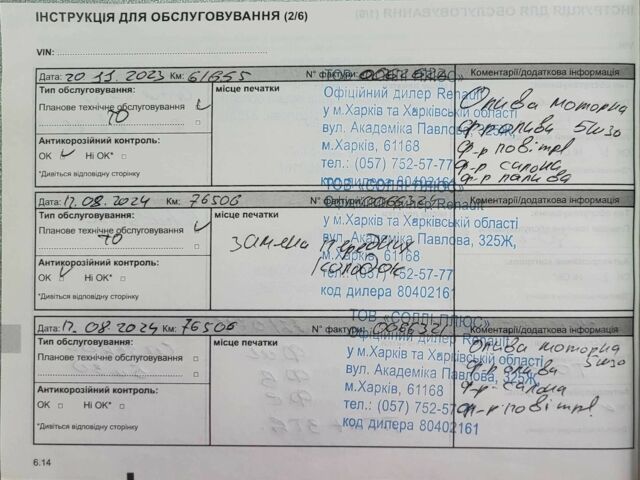 ІНСТРУКЦІЯ ДЛЯ ОБСЛУГОВУВАННЯ (2/6)
VIN:
Дата: 20 11.2023 Км: 61955 N° фактури:
Коментарі/додаткова інформація
Тип обслуговування:
місце печатки
Планове технічне обслуговування
ТО
Антикорозійний контроль:
ОК Ні ОК*
*Дивіться відповідну сторінку
ТОВ «СОЛЛІ ПЛЮС»
Офіційний дилер Renault
у м.Харків та Харківській області
вул. Академіка Павлова,
м.Харків, 61168
тел.: (057) 752-57-77
код дилера 80402161
Олива моторна
ф-р олива 5w30
ф-р повітр
ф-р салона
ф-р палива
Дата: 17.08.2024 Км: 76506 N° фактури: 0066321
Коментарі/додаткова інформація
Тип обслуговування:
місце печатки
Планове технічне обслуговування
ТО
Антикорозійний контроль:
ОК Ні ОК*
*Дивіться відповідну сторінку
заміна передніх
колодок
ТОВ «СОЛЛІ ПЛЮС»
Офіційний дилер Renault
у м.Харків та Харківській області
вул. Академіка Павлова, 325Ж,
м.Харків, 61168
тел.: (057) 752-57-77
код дилера 80402161
Дата: 17.08.2024 Км: 76506 N° фактури: 0066321
Коментарі/додаткова інформація
Тип обслуговування:
місце печатки
Планове технічне обслуговування
Антикорозійний контроль:
ОК Ні ОК*
*Дивіться відповідну сторінку
ТОВ «СОЛЛІ ПЛЮС»
Офіційний дилер Renault
у м.Харків та Харківській області
вул. Академіка Павлова, 325Ж,
м.Харків, 61168
тел.: (057) 752-57
код дилера 80402161
Олива моторна
ф-р олива 5w30
ф-р салона
ф-р повітр
6.14